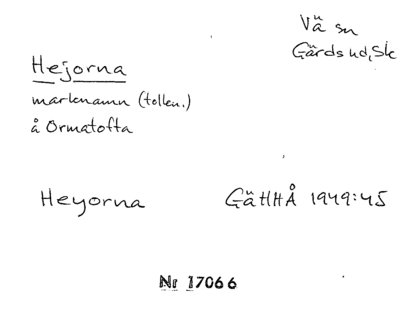 Vä sn
Gärds hd, Sk
Hejorna
marknamn (tolkn.)
å Ormatofta
Heyorna
GäHHÅ 1949:45
Nr 17066